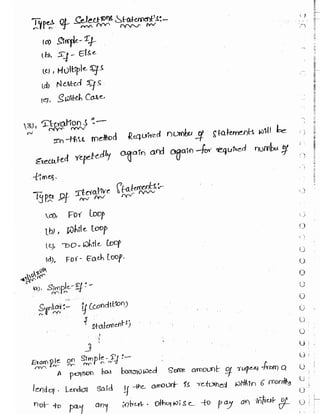 Types Of Selections Statement's:-
(a) Simple-If
(b), If - Else
(c), Multiple Ifs
(d) Nested Ifs
(e), Switch Case.
(3), Iterations :-
In this method Required number of statements will be
Executed repetedly again and again for required number of
times.
Types Of Iterative Statements:-
(a), For Loop
(b), While Loop
(c), DO-While Loop
(d), For - Each Loop.
a). Simple-If :-
Syntax:- if (condition)
{
Statement();
}
Example on Simple-If :-
A person has borrowed Some amount of rupees from a
lender. Lender Said if the amount is returned within 6 months
not to pay any intrest. Otherwise to pay an intrest of